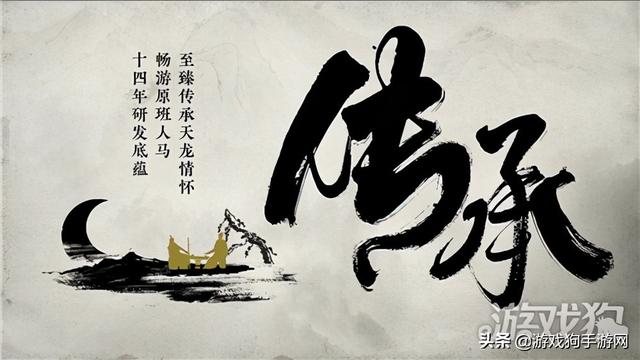 至臻传承天龙情怀
畅游原班人马
十四年研发底蕴
传承
游戏狗
头条 @游戏狗手游网